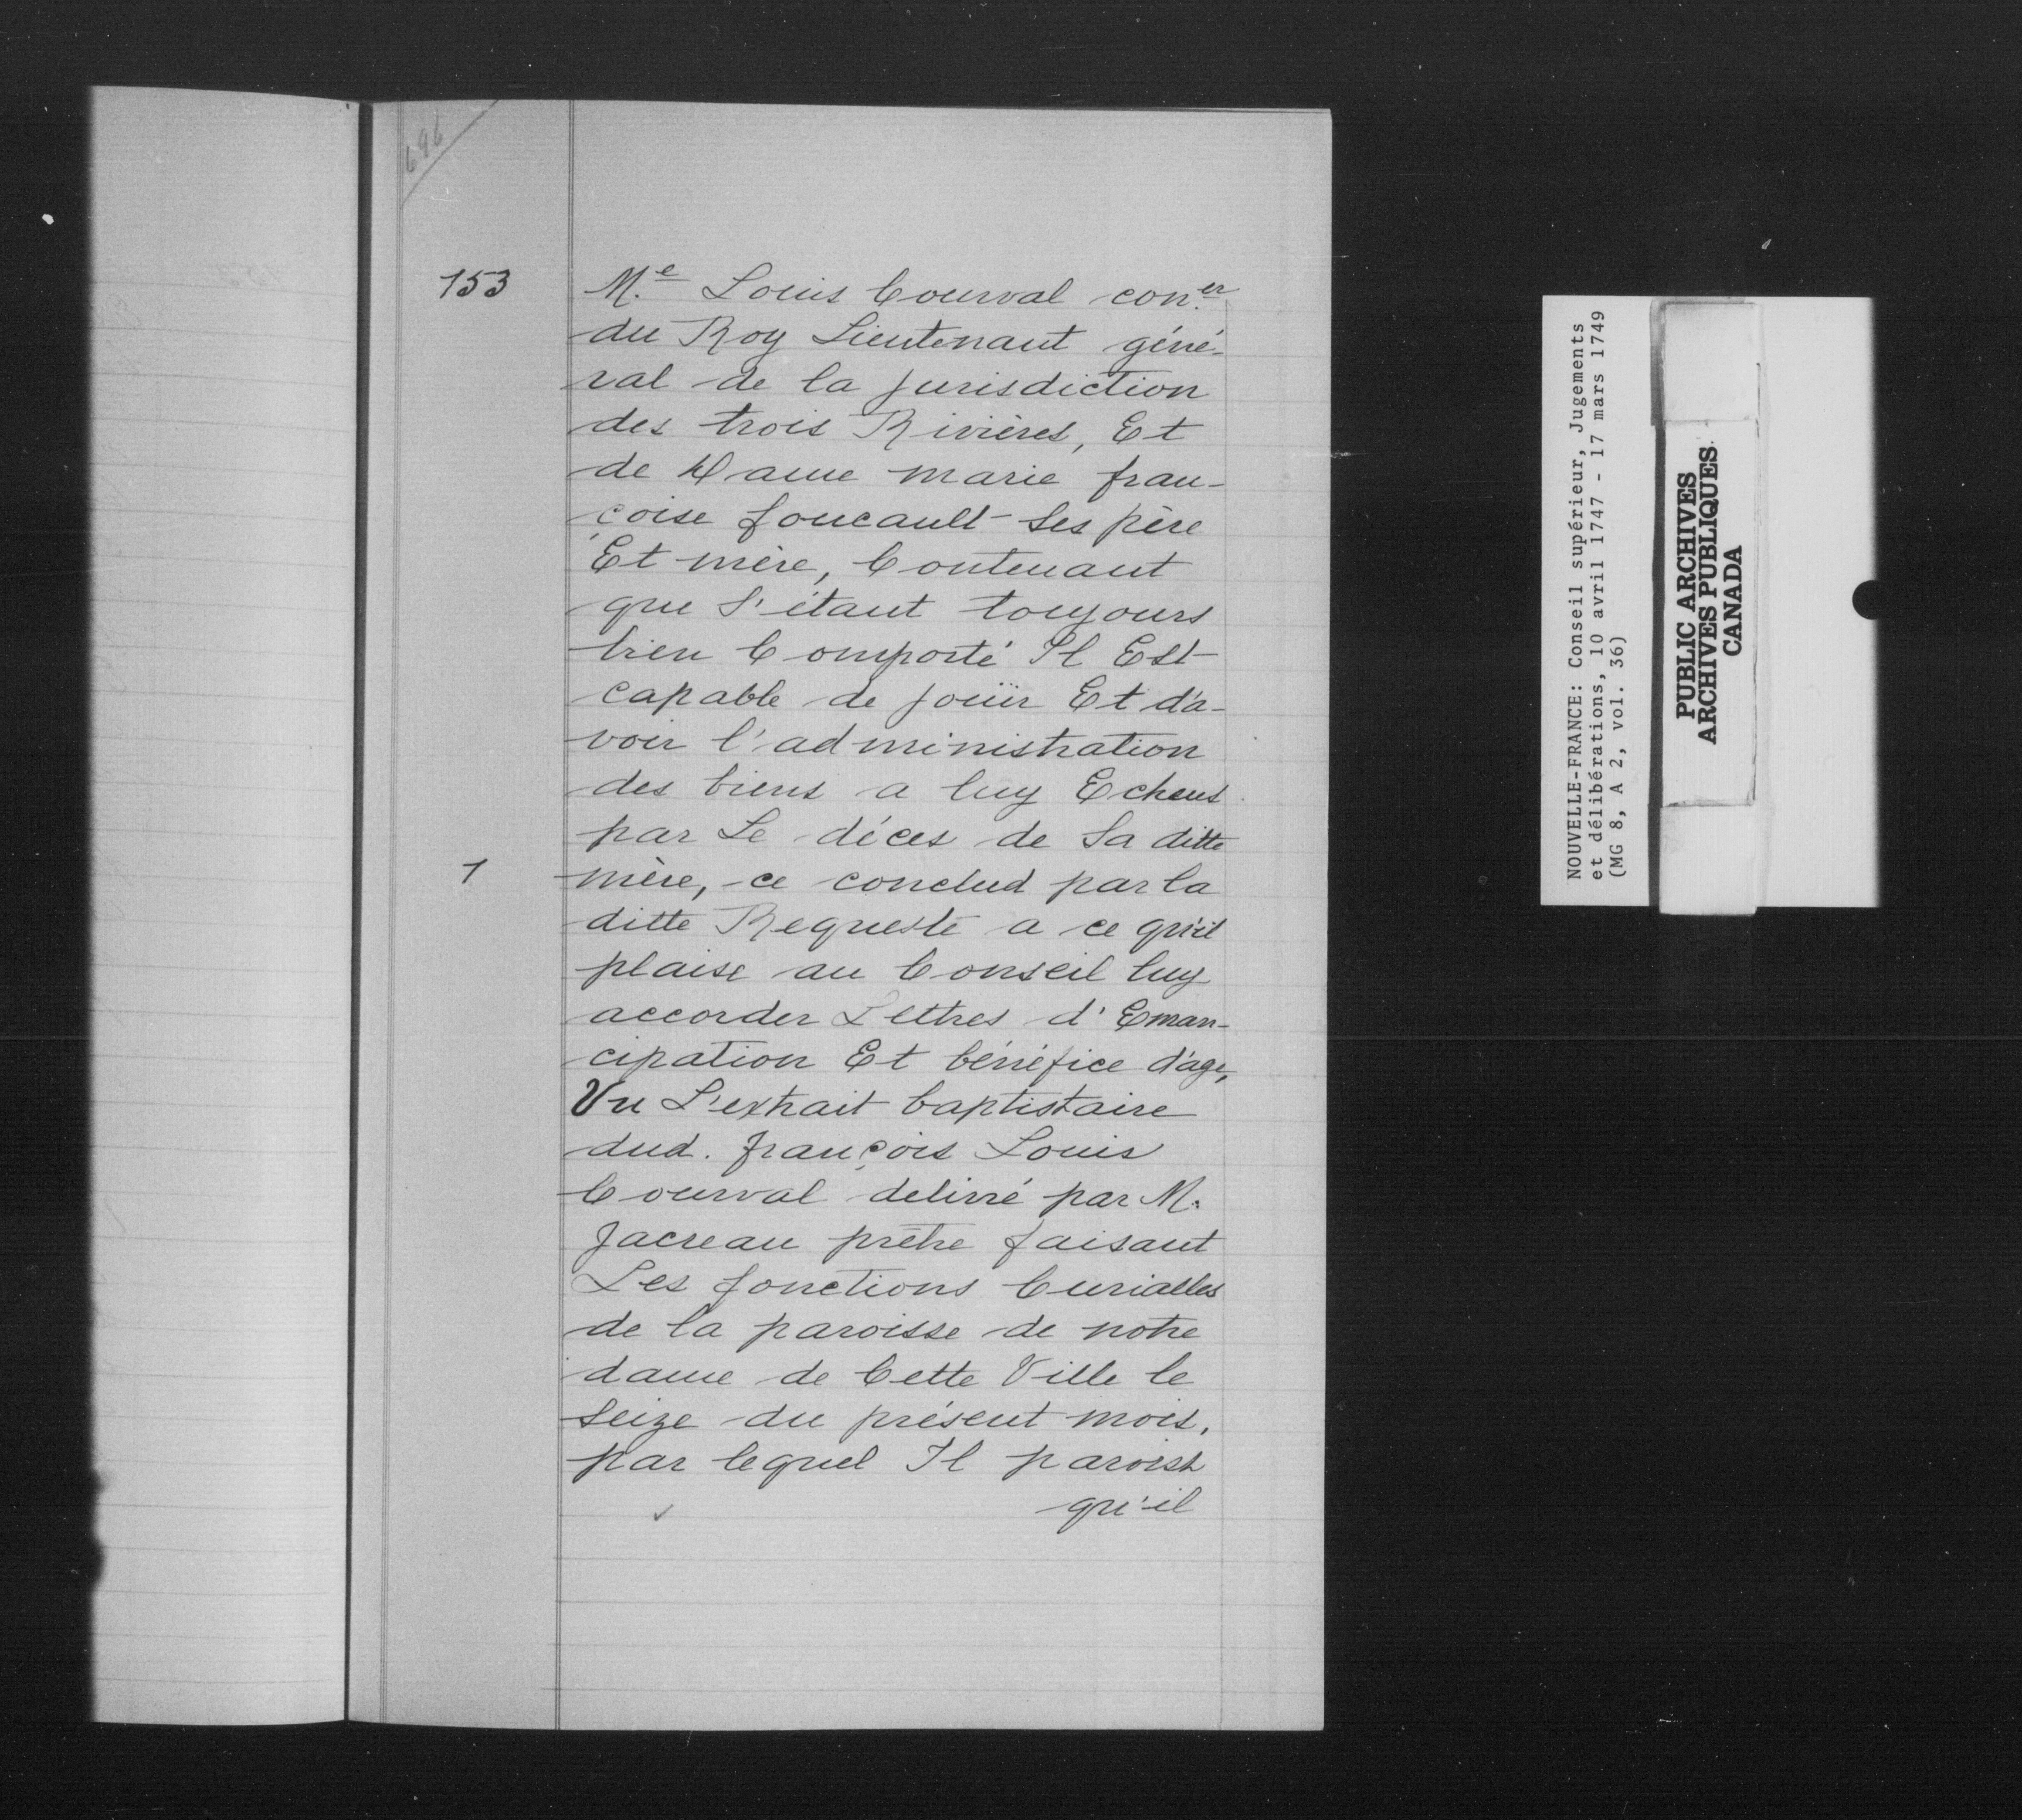 696
153
M.e Louis Courval con.er
du Roy Lieutenant géné-
ral de la jurisdiction
des trois Rivières, Et
de Dame marie fran-
çoise foucault Ses père
Et mère, Contenant
que S'étant toujours
bien Comporté Il Est
capable de joüir Et d'a-
voir l'administration
des biens a luy Echeus
par Le déces de Sa ditte
1
mère, ce conclud par la
ditte Requeste a ce qu'il
plaise au Conseil luy
accorder Lettres d'Eman-
cipation Et bénéfice d'age,
Vu L'extrait baptistaire
dud. françois Louis
Courval delivré par M.
Jacreau prêtre faisant
Les fonctions Curialles
de la paroisse de notre
dame de Cette Ville le
Seize du présent mois,
par lequel Il paroist
qu'il
NOUVELLE-FRANCE: Conseil supérieur, Jugements
et délibérations, 10 avril 1747 - 17 mars 1749
(MG 8, A 2, vol. 36)
PUBLIC ARCHIVES
ARCHIVES PUBLIQUES
CANADA